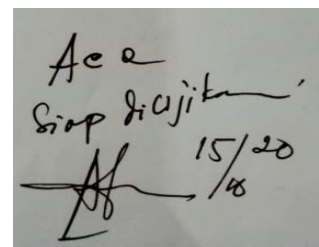 Acc
Siap diujikan
15/20
/8